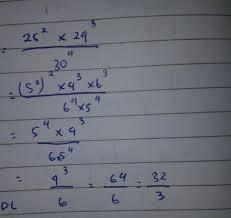 = 25² × 24³ / 30⁴
= (5²)² × 4³ × 6³ / 6⁴ × 5⁴
= 5⁴ × 4³ / 6 × 5⁴
= 4³ / 6 = 64 / 6 = 32 / 3
DL